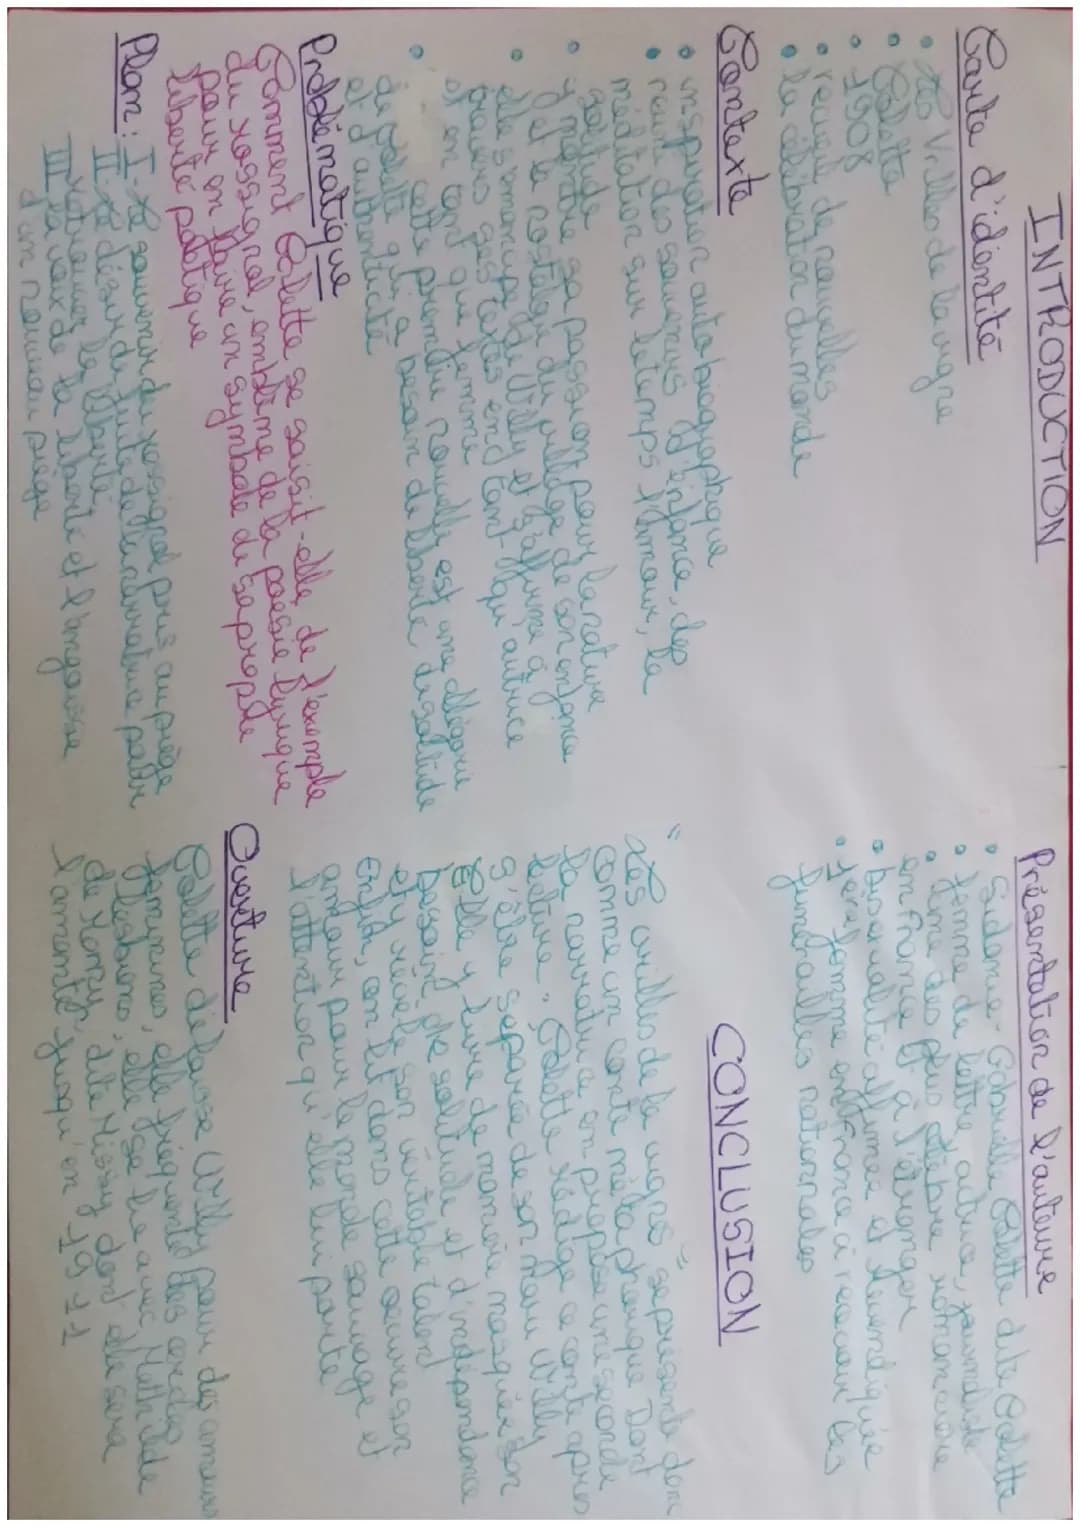 INTRODUCTION
Carte d'identité
• Les Vrilles de la vigne
• Colette
• 1908
• recueil de nouvelles
• la célébration du monde
Contexte
• inspiration autobiographique
• réunit des souvenirs d'enfance, des
méditation sur le temps, l'Amour, la
solitude
• y montre sa passion pour la nature
et la nostalgie du village de son enfance
• elle s'émancipe de Willy et s'affirme à
travers ses textes en tant qu'autrice
et en tant que femme
• cette première nouvelle est une allégorie
de Colette qui a besoin de liberté, de solitude
et d'authenticité
Problématique
Comment Colette se saisit-elle de l'exemple
du rossignol, emblème de la poésie lyrique
pour en faire un symbole de sa propre
liberté poétique
Plan : I - Le souvenir du rossignol pris au piège
II - Le désir de fuite de la narratrice pour
retrouver la liberté
III - La voix de la liberté et l'angoisse
d'un nouveau piège
Présentation de l'auteure
• Sidonie-Gabrielle Colette dite Colette
• femme de lettre, actrice, journaliste
• l'une des plus célèbre romancière
en France et à l'étranger
• bisexualité affirmée et revendiquée
• 1ère femme en France à recevoir les
funérailles nationales
CONCLUSION
"Les vrilles de la vigne" se présente donc
comme un conte métaphorique Dont
la narratrice en propose une seconde
lecture. Colette rédige ce conte après
s'être séparée de son mari Willy
Elle y livre de manière masquée son
besoin de solitude et d'indépendance
et y révèle son véritable talent
Enfin, on lit dans cette œuvre son
amour pour le monde sauvage et
l'attention qu'elle lui porte
Ouverture
Colette délaisse Willy pour des amours
féminines, elle fréquente les cercles
lesbiens, elle se lie avec Mathilde
de Morny, dite Missy dont elle sera
l'amante jusqu'en 1911